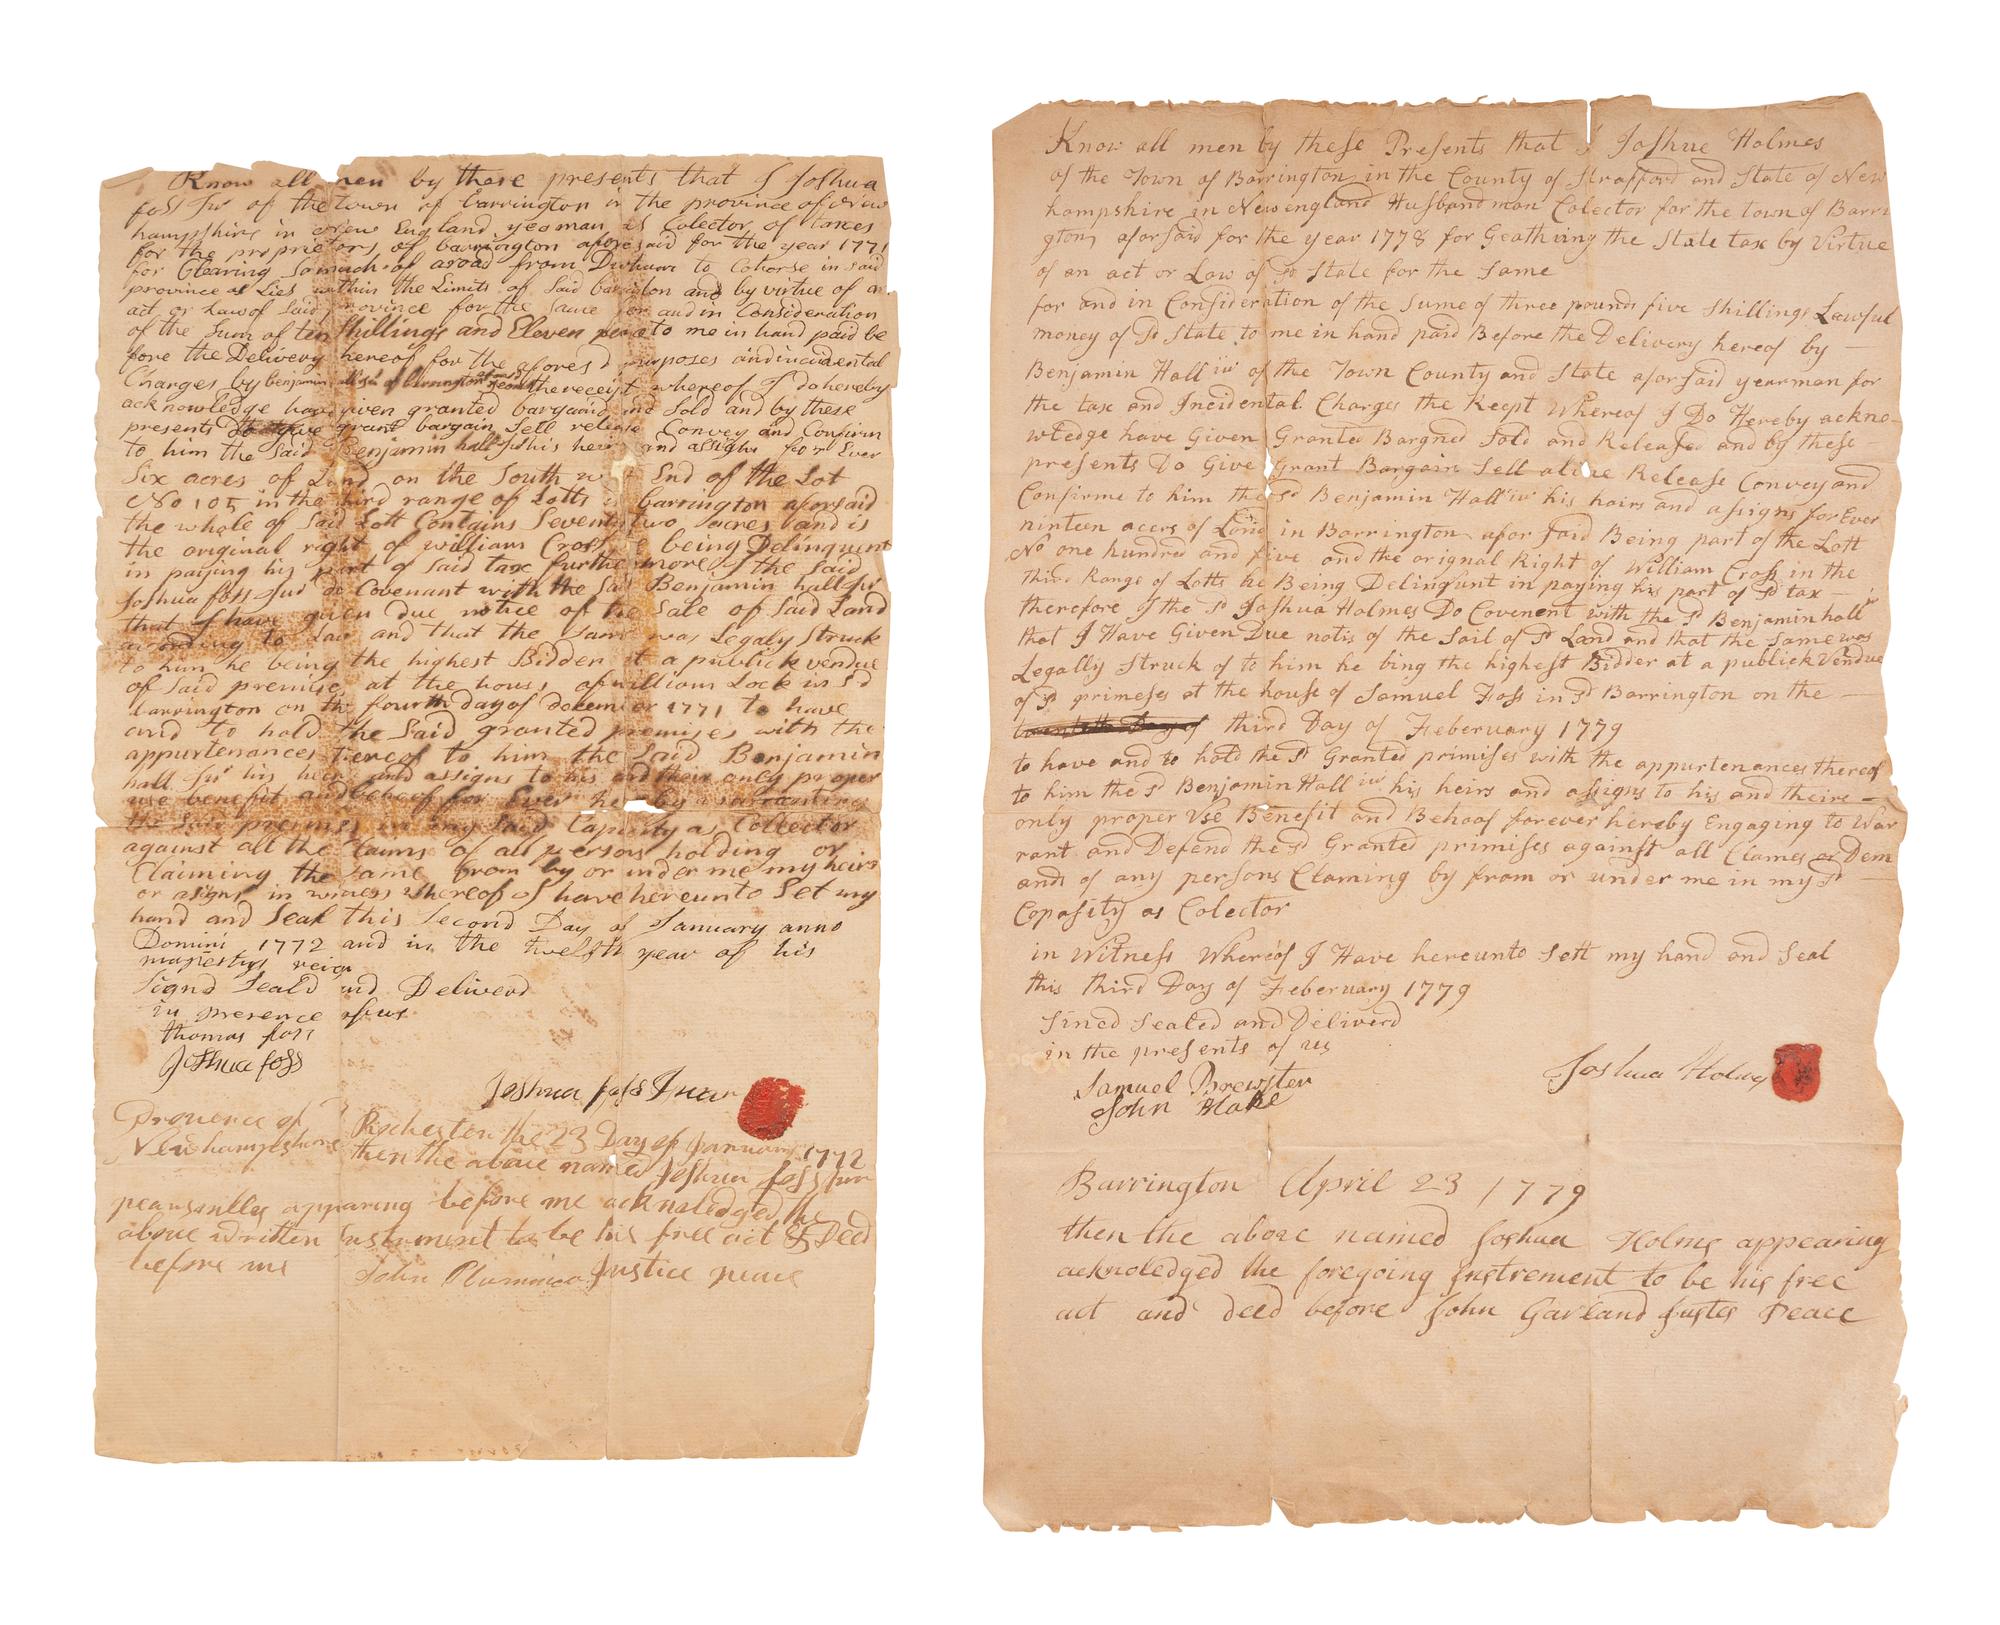 Know all men by these presents that I Joshua
foss Jur of the town of barrington in the province of New
hampshire in New England yeoman as Colector of taxes
for the proprietors of barrington aforesaid for the year 1771
for Clearing so much of a road from Durham to Cohorse in said
province as Lies within the Limits of Said barrington and by virtue of an
act or Law of Said province for the same for and in Consideration
of the Sum of ten Shillings and Eleven pence to me in hand paid be
fore the Delivery hereof for the aforesd purposes and incidental
Charges by benjamin hall Jur of barrington yeoman the receipt whereof I do hereby
acknowledge have given granted bargained and Sold and by these
presents Do give grant bargain Sell release Convey and Confirm
to him the Said Benjamin hall Jur his heirs and assigns for Ever
Six acres of Land on the South End of the Lot
No 105 in the third range of Lotts in barrington aforsaid
the whole of Said Lott Contains Seventy two acres and is
the original right of william Cross he being Delinquent
in paying his part of Said tax furthermore I the Said
Joshua foss Jur do Covenant with the Said Benjamin hall Jur
that I have given Due notice of the Sale of Said Land
according to Law and that the Same was Legaly Struck
to him he being the highest Bidder at a publick vendue
of Said premises at the house of william Lock in Sd
barrington on the fourth day of december 1771 to have
and to hold the Said granted premises with the
appurtenances thereof to him the Said Benjamin
hall Jur his heirs and assigns to his and their only proper
use benefit and behoof for Ever hereby warranting
the Said premises in my Said Capacity as Collector
against all the Claims of all persons holding or
Claiming the Same from by or under me my heirs
or asigns in witness whereof I have hereunto Set my
hand and Seal this Second Day of January anno
Domini 1772 and in the twelfth year of his
majestys reign
Signd Seald and Deliverd
in presence of us
thomas foss
Joshua foss
Joshua foss Juner
Provence of
Newhampshire
Rochester the 23 Day of January 1772
then the above named Joshua foss Jur
pearsonilley apparing before me acknoledged the
above written Instrument to be his free act & Deed
before me John Plummer Justice peace
Know all men by these Presents that I Joshue Holmes
of the Town of Barrington in the County of Strafford and State of New
hampshire in Newengland Husbandman Colector for the town of Barri
gton aforsaid for the year 1778 for Geathring the State tax by Virtue
of an act or Law of Sd State for the Same
for and in Consideration of the Sume of three pounds five Shillings Lawful
money of Sd State to me in hand paid Before the Delivery hereof by —
Benjamin Hall iur of the Town County and State aforsaid yearman for
the tax and Incidental Charges the Recpt Whereof I Do Hereby ackno-
wledge have Given Granted Bargned Sold and Releafed and by these —
presents Do Give Grant Bargain Sell aline Release Convey and
Confirme to him the Sd Benjamin Hall iur his hairs and assigns for Ever
ninteen acers of Land in Barrington aforsaid Being part of the Lott
No one hundred and five and the orignal Right of William Cross in the
third Range of Lotts he Being Delinqunt in paying his part of Sd tax —
therefore I the Sd Joshua Holmes Do Covenent with the Sd Benjamin hall iur
that I Have Given Due notis of the Sail of Sd Land and that the Same was
Legally Struck of to him he bing the highest Bidder at a publick Vendue
of Sd primeses at the house of Samuel Foss in Sd Barrington on the —
third Day of Feberuary 1779
to have and to hold the Sd Granted primises with the appurtenances thereof
to him the Sd Benjamin Hall iur his heirs and assigns to his and theire —
only proper Use Benefit and Behoof forever hereby Engaging to War
rant and Defend the Sd Granted primises against all Clames or Dem
ands of any persons Claming by from or under me in my Sd —
Copasity as Colector
in Witness Whereof I Have hereunto Sett my hand and Seal
this third Day of Feberuary 1779
Sined Sealed and Deliverd
in the presents of us
Samuel Brewster
John Hake
Joshua Holmes
Barrington April 23 1779
then the above named Joshua Holms appearing
acknoledged the foregoing Instrement to be his free
act and deed before John Garland Justes Peace